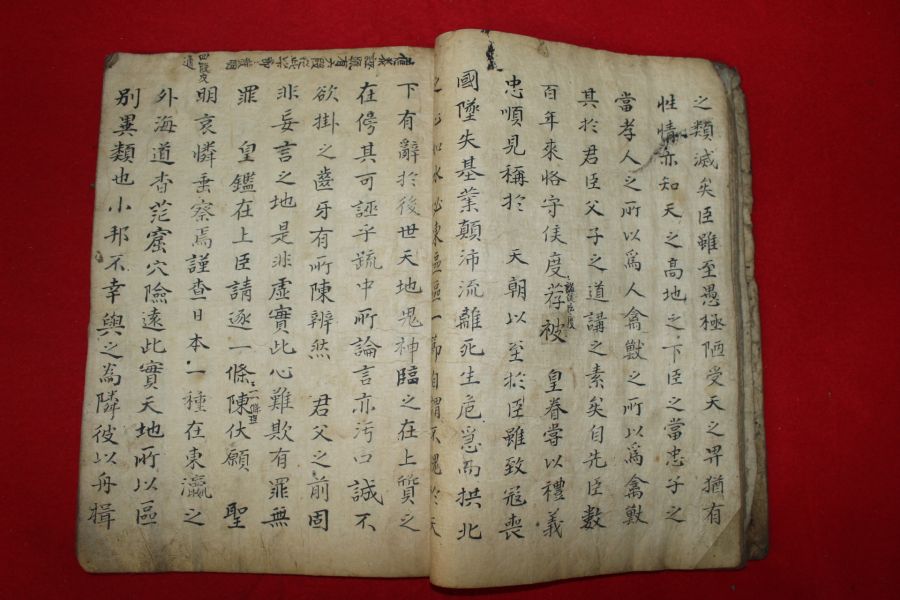 之類滅矣臣雖至愚極陋受天之畀猶有
性情亦知天之高地之下臣之當忠子之
當孝人之所以爲人禽獸之所以爲禽獸
其於君臣父子之道講之素矣自先臣數
百年來恪守侯度荐被 皇眷嘗以禮義
忠順見稱於 天朝以至於臣雖致寇喪
國墜失基業顚沛流離死生危急而拱北
之 如水必東區區一節自謂不愧於天
下有辭於後世天地鬼神臨之在上質之
在傍其可誣乎疏中所論言亦污口誠不
欲掛之齒牙有所陳辨然 君父之前固
非妄言之地是非虛實此心難欺有罪無
罪 皇鑑在上臣請逐一條陳伏願 聖
明哀憐垂察焉謹查日本一種在東瀛之
外海道杳茫窟穴險遠此實天地所以區
別異類也小邦不幸與之為隣彼以舟楫